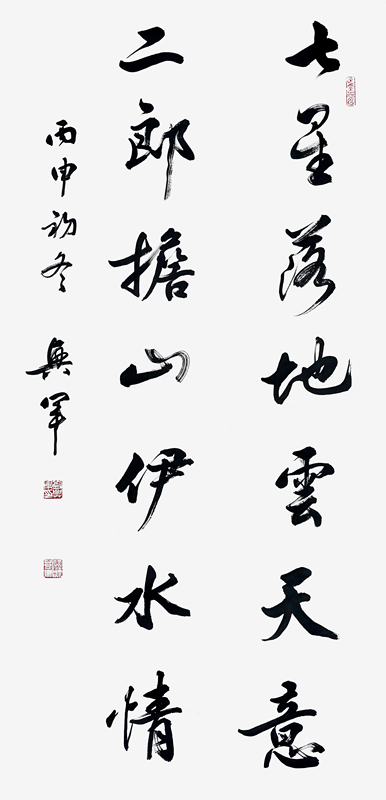 七星落地雲天意
二郎擔山伊水情
丙申初冬 興軍